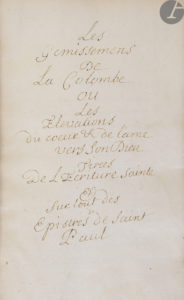 Les
Gemissemens
De
La Colombe
ou
Les
Elevations
du coeur & de l'ame
vers son Dieu
Tirees
De L'Ecriture Sainte
et
Sur tout des
Epistres de Saint
Paul